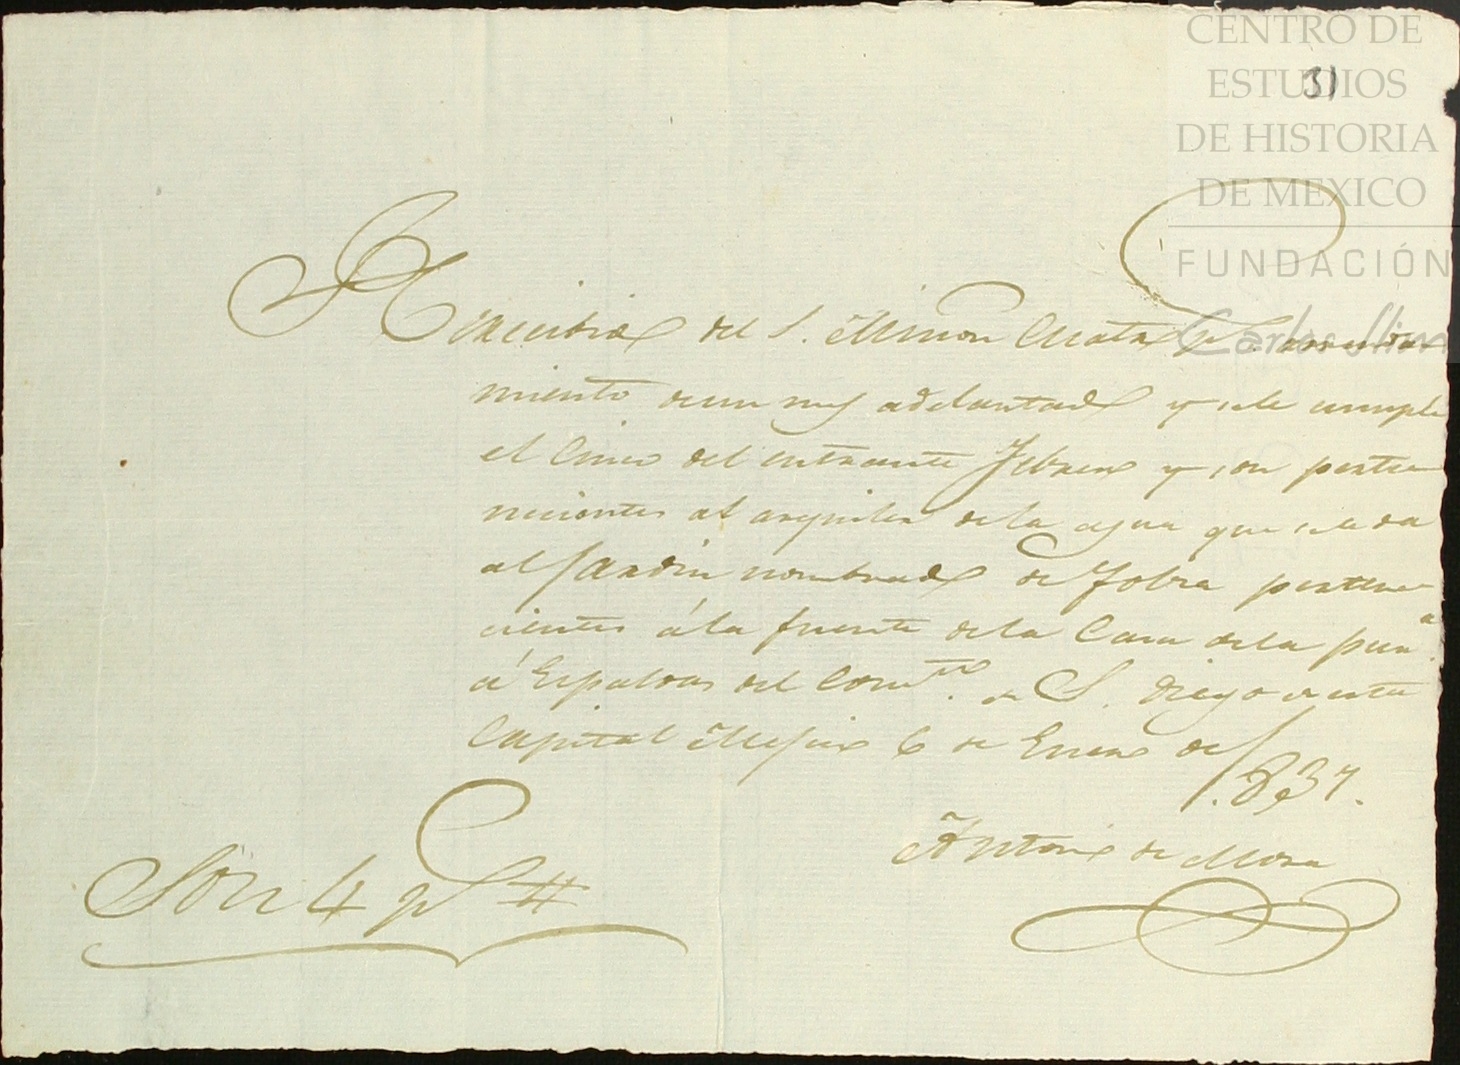 CENTRO DE
ESTUDIOS
DE HISTORIA
DE MEXICO
FUNDACIÓN
Carlos Slim
31
del S. Simon quatro p.s arrenda
miento de un mes adelantado y se le cumple
el Cinco del entrante Febrero y son perte
necientes al arquiler de la agua que se le da
al Jardin nombrado de Tolsa pertene
cientes á la fuente de la Casa de la
á Espaldas del Conv.to de S. Diego de esta
Capital Mejico 6 de Enero de
1.837.
Antonio de Mora
Son 4 ps #